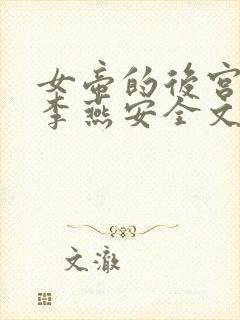 女帝的後宮
李燕安全文
文澈